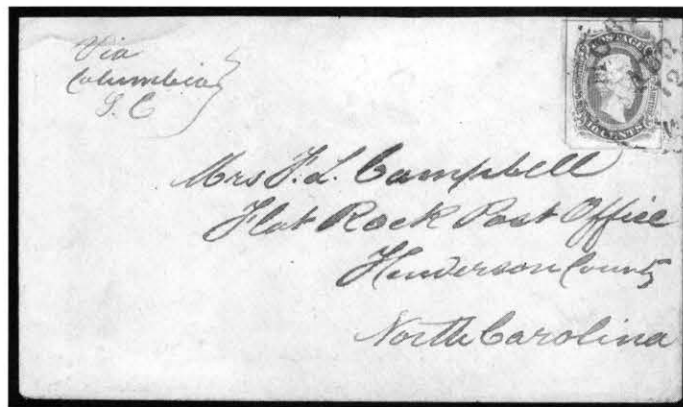 Via
Columbia
S. C
POSTAGE
CENTS
Mrs F. L. Campbell
Flat Rock Post Office
Henderson County
North Carolina